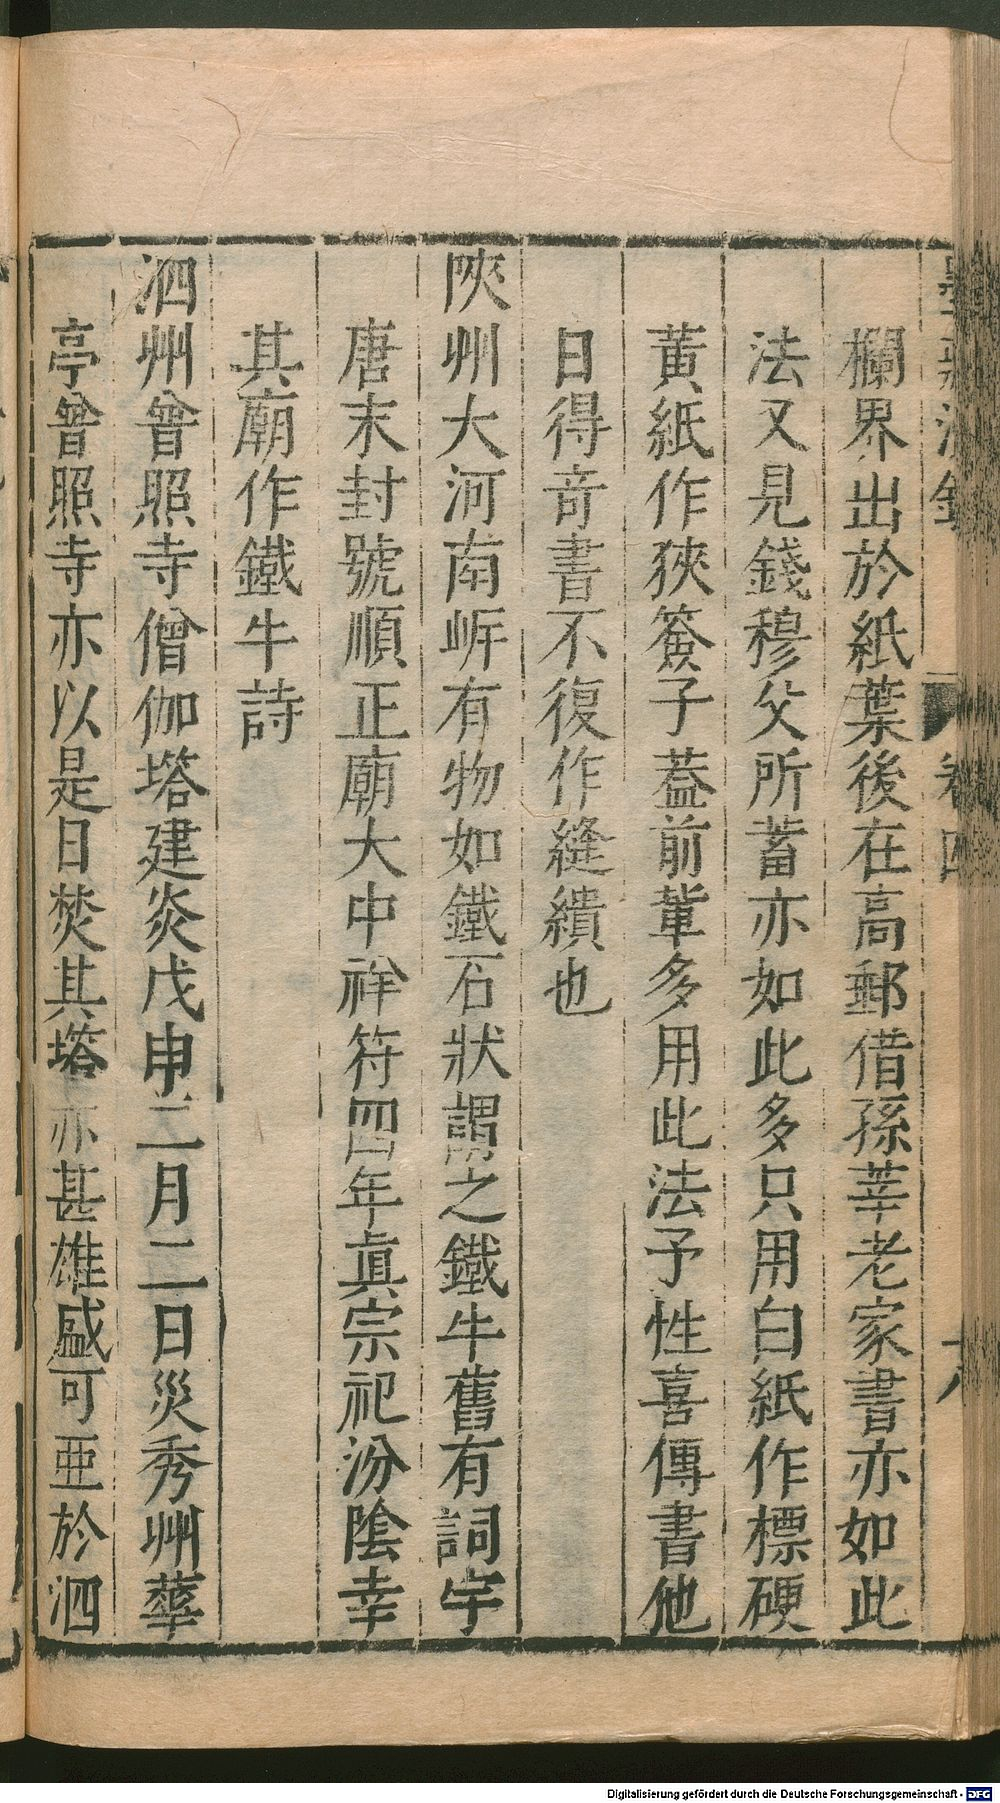 墨莊漫錄
卷四
欄界出於紙葉後在高郵借孫莘老家書亦如此
法又見錢穆父所蓄亦如此多只用白紙作標硬
黃紙作狹簽子蓋前輩多用此法予性喜傳書他
日得竒書不復作縫繢也
陝州大河南岍有物如鐵石狀謂之鐵牛舊有詞宇
唐末封號順正廟大中祥符四年眞宗祀汾陰幸
其廟作鐵牛詩
泗州曾照寺僧伽塔建炎戊申二月二日災秀州華
亭曾照寺亦以是日焚其塔亦甚雄盛可亜於泗
Digitalisierung gefördert durch die Deutsche Forschungsgemeinschaft - DFG